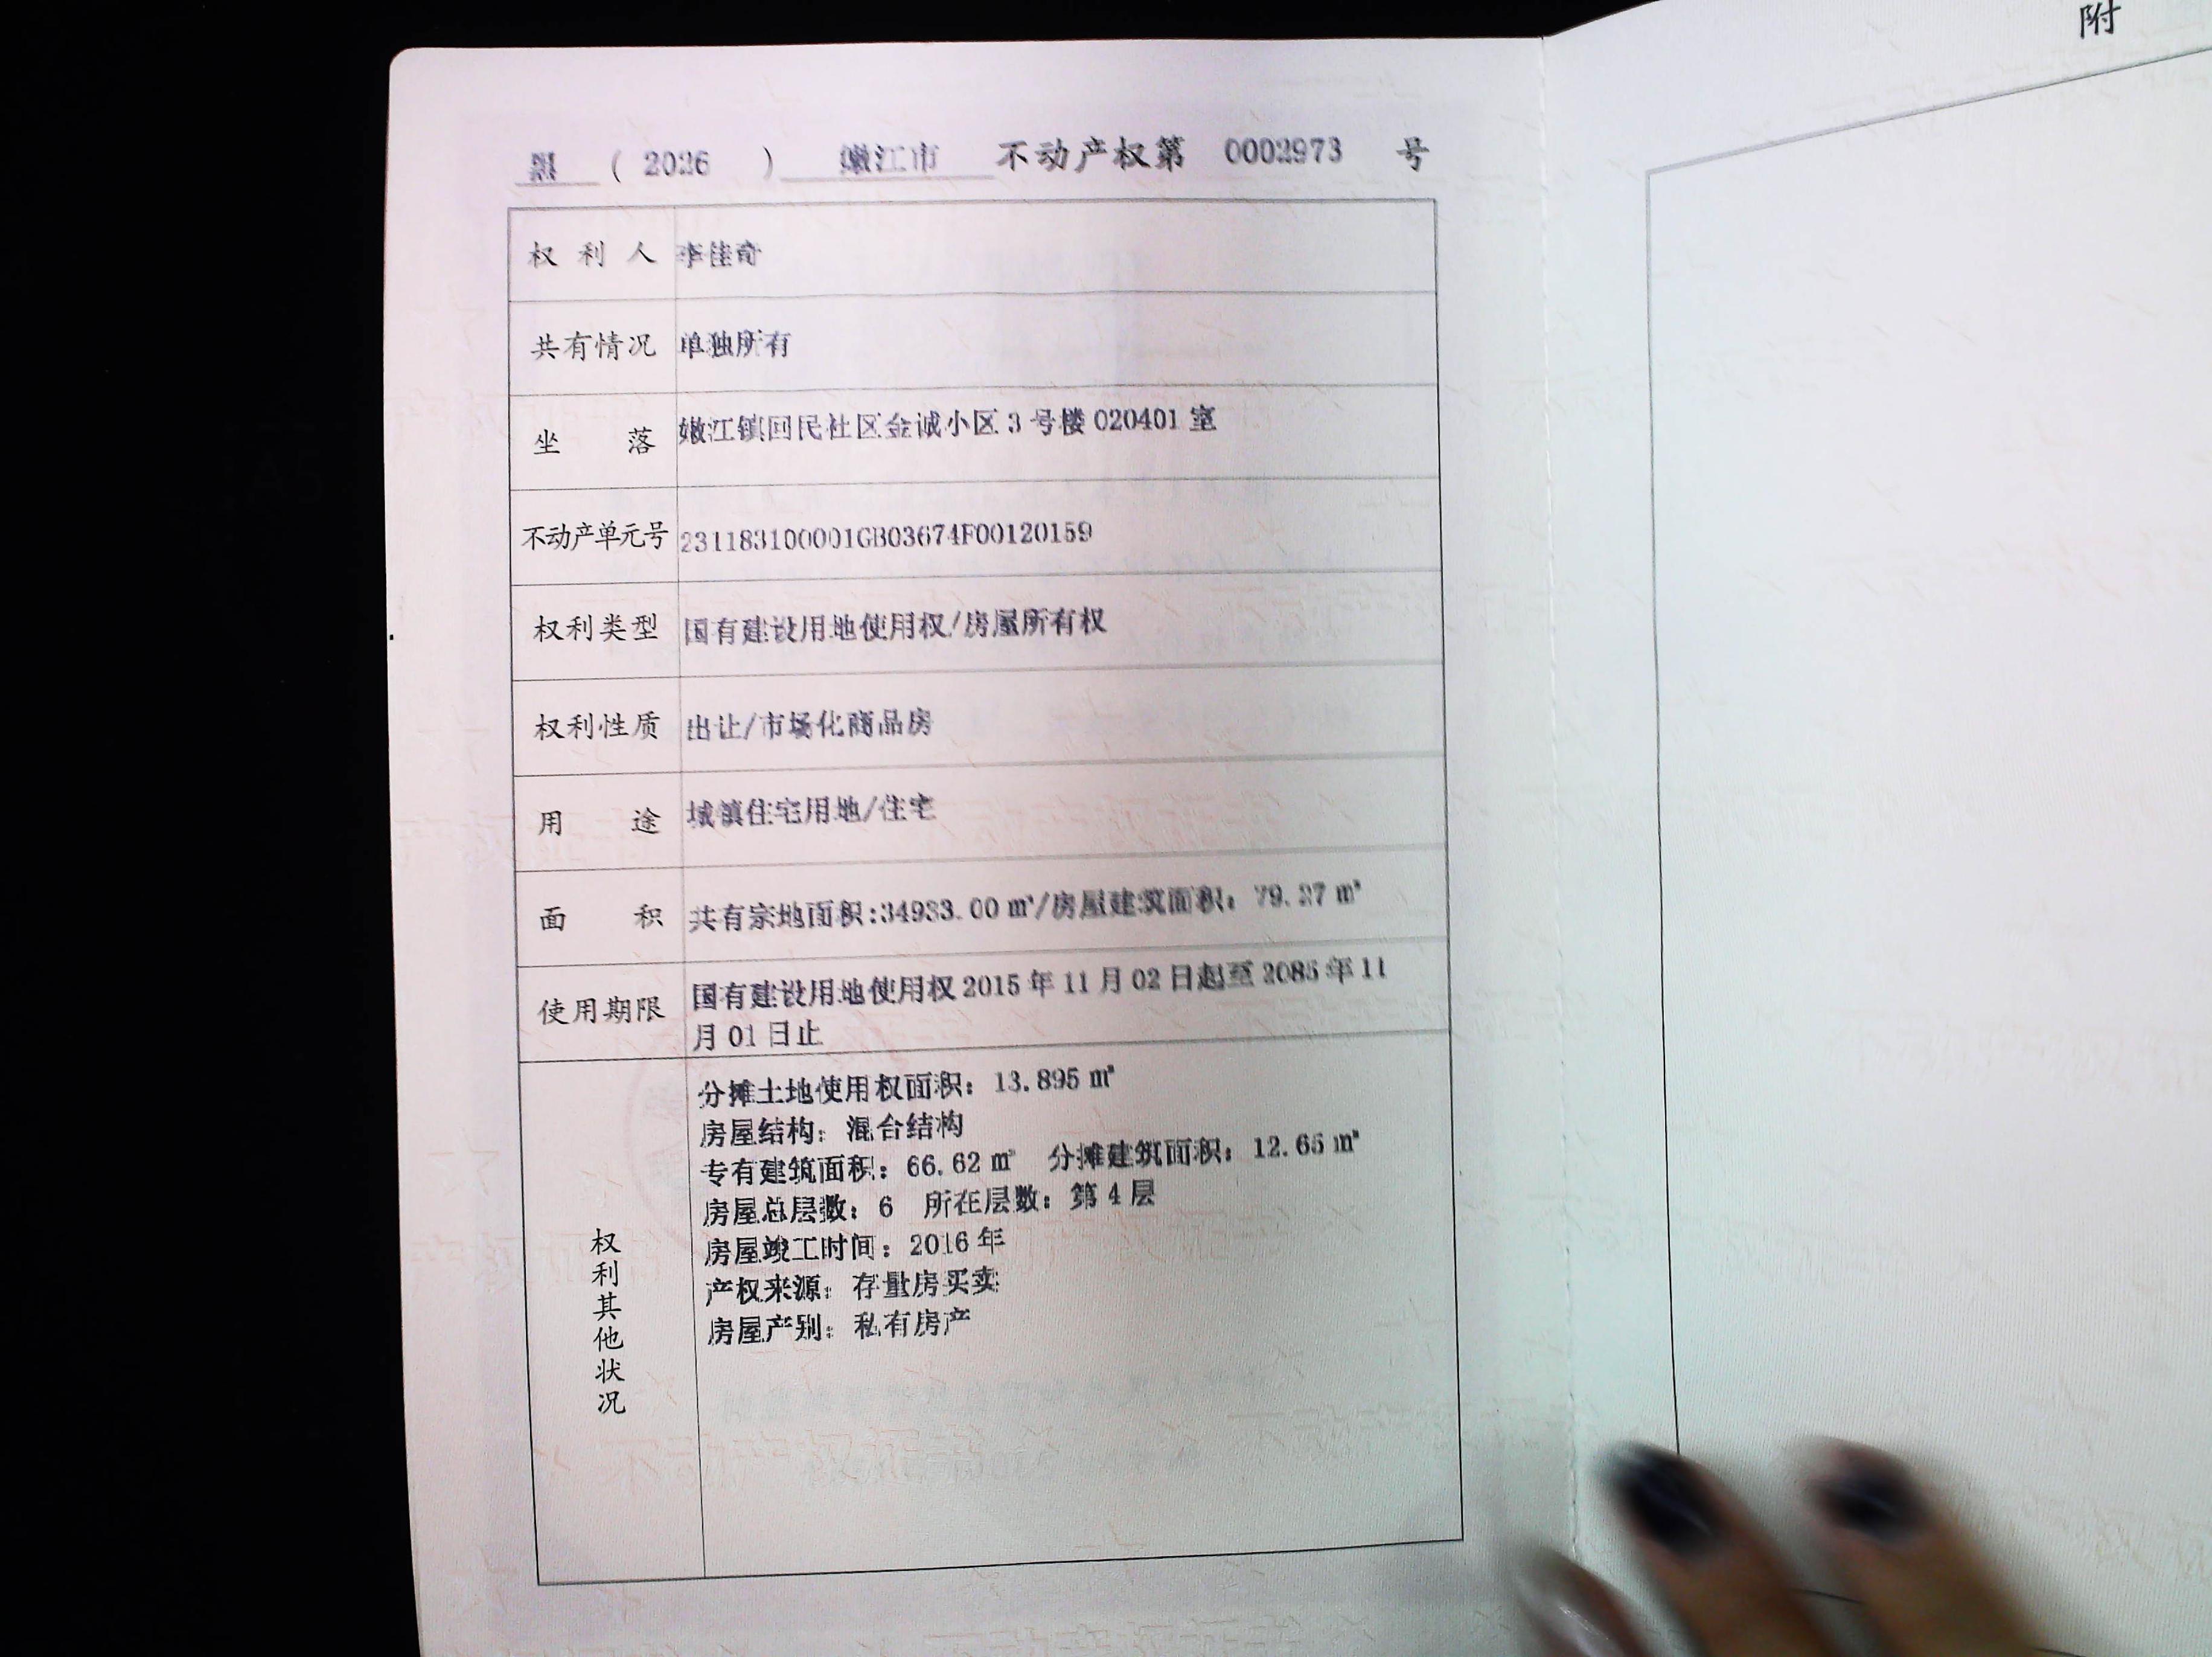 附
黑 ( 2026 ) 嫩江市 不动产权第 0002973 号
权利人 李佳奇
共有情况 单独所有
坐落 嫩江镇回民社区金诚小区 3 号楼 020401 室
不动产单元号 231183100001GB03674F00120159
权利类型 国有建设用地使用权/房屋所有权
权利性质 出让/市场化商品房
用途 城镇住宅用地/住宅
面积 共有宗地面积:34933.00 ㎡/房屋建筑面积：79.27 ㎡
使用期限 国有建设用地使用权 2015 年 11 月 02 日起至 2085 年 11
月 01 日止
权利其他状况
分摊土地使用权面积：13.895 ㎡
房屋结构：混合结构
专有建筑面积：66.62 ㎡ 分摊建筑面积：12.65 ㎡
房屋总层数：6 所在层数：第 4 层
房屋竣工时间：2016 年
产权来源：存量房买卖
房屋产别：私有房产